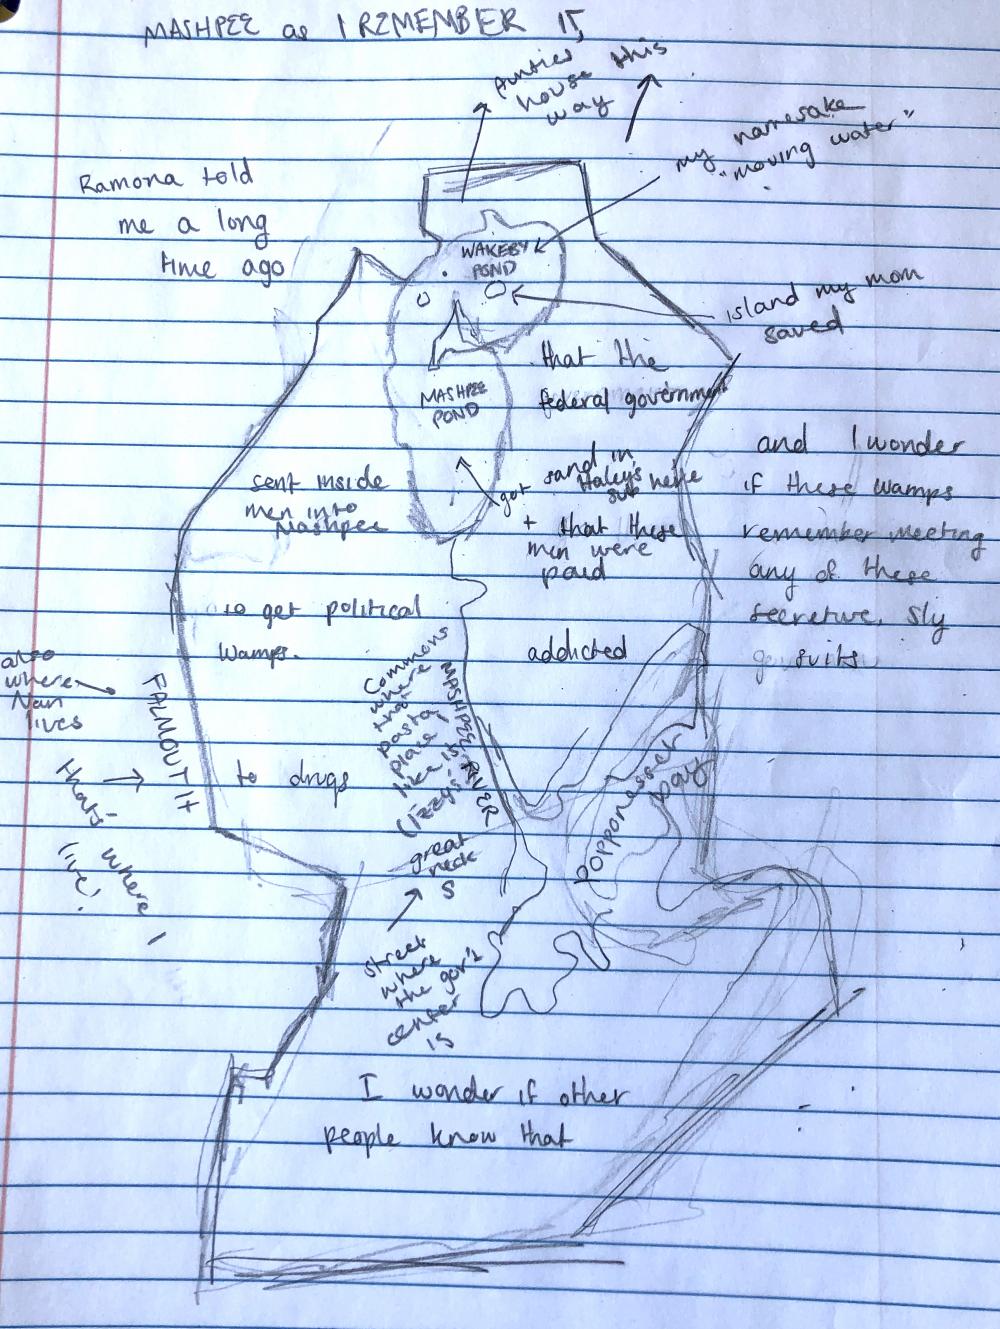 MASHPEE as I REMEMBER IT
Aunties
house this
way
my namesake
"moving water"
Ramona told
me a long
time ago
WAKEBY
POND
island my mom
saved
that the
federal government
MASHPEE
POND
and I wonder
if these wamps
remember meeting
any of these
secretive, sly
suits
sent inside
men into
Mashpee
got sand in
Haley's
sub here
+ that these
men were
paid
to get political
wamps.
addicted
to drugs
also
where
Nan
lives
FALMOUTH
that's where I
live!
Commons
where
that
pasta
place
like is
(Izzy's)
MASHPEE RIVER
popponesset
bay
great
neck
S
street
where
the gov't
center
is
I wonder if other
people know that